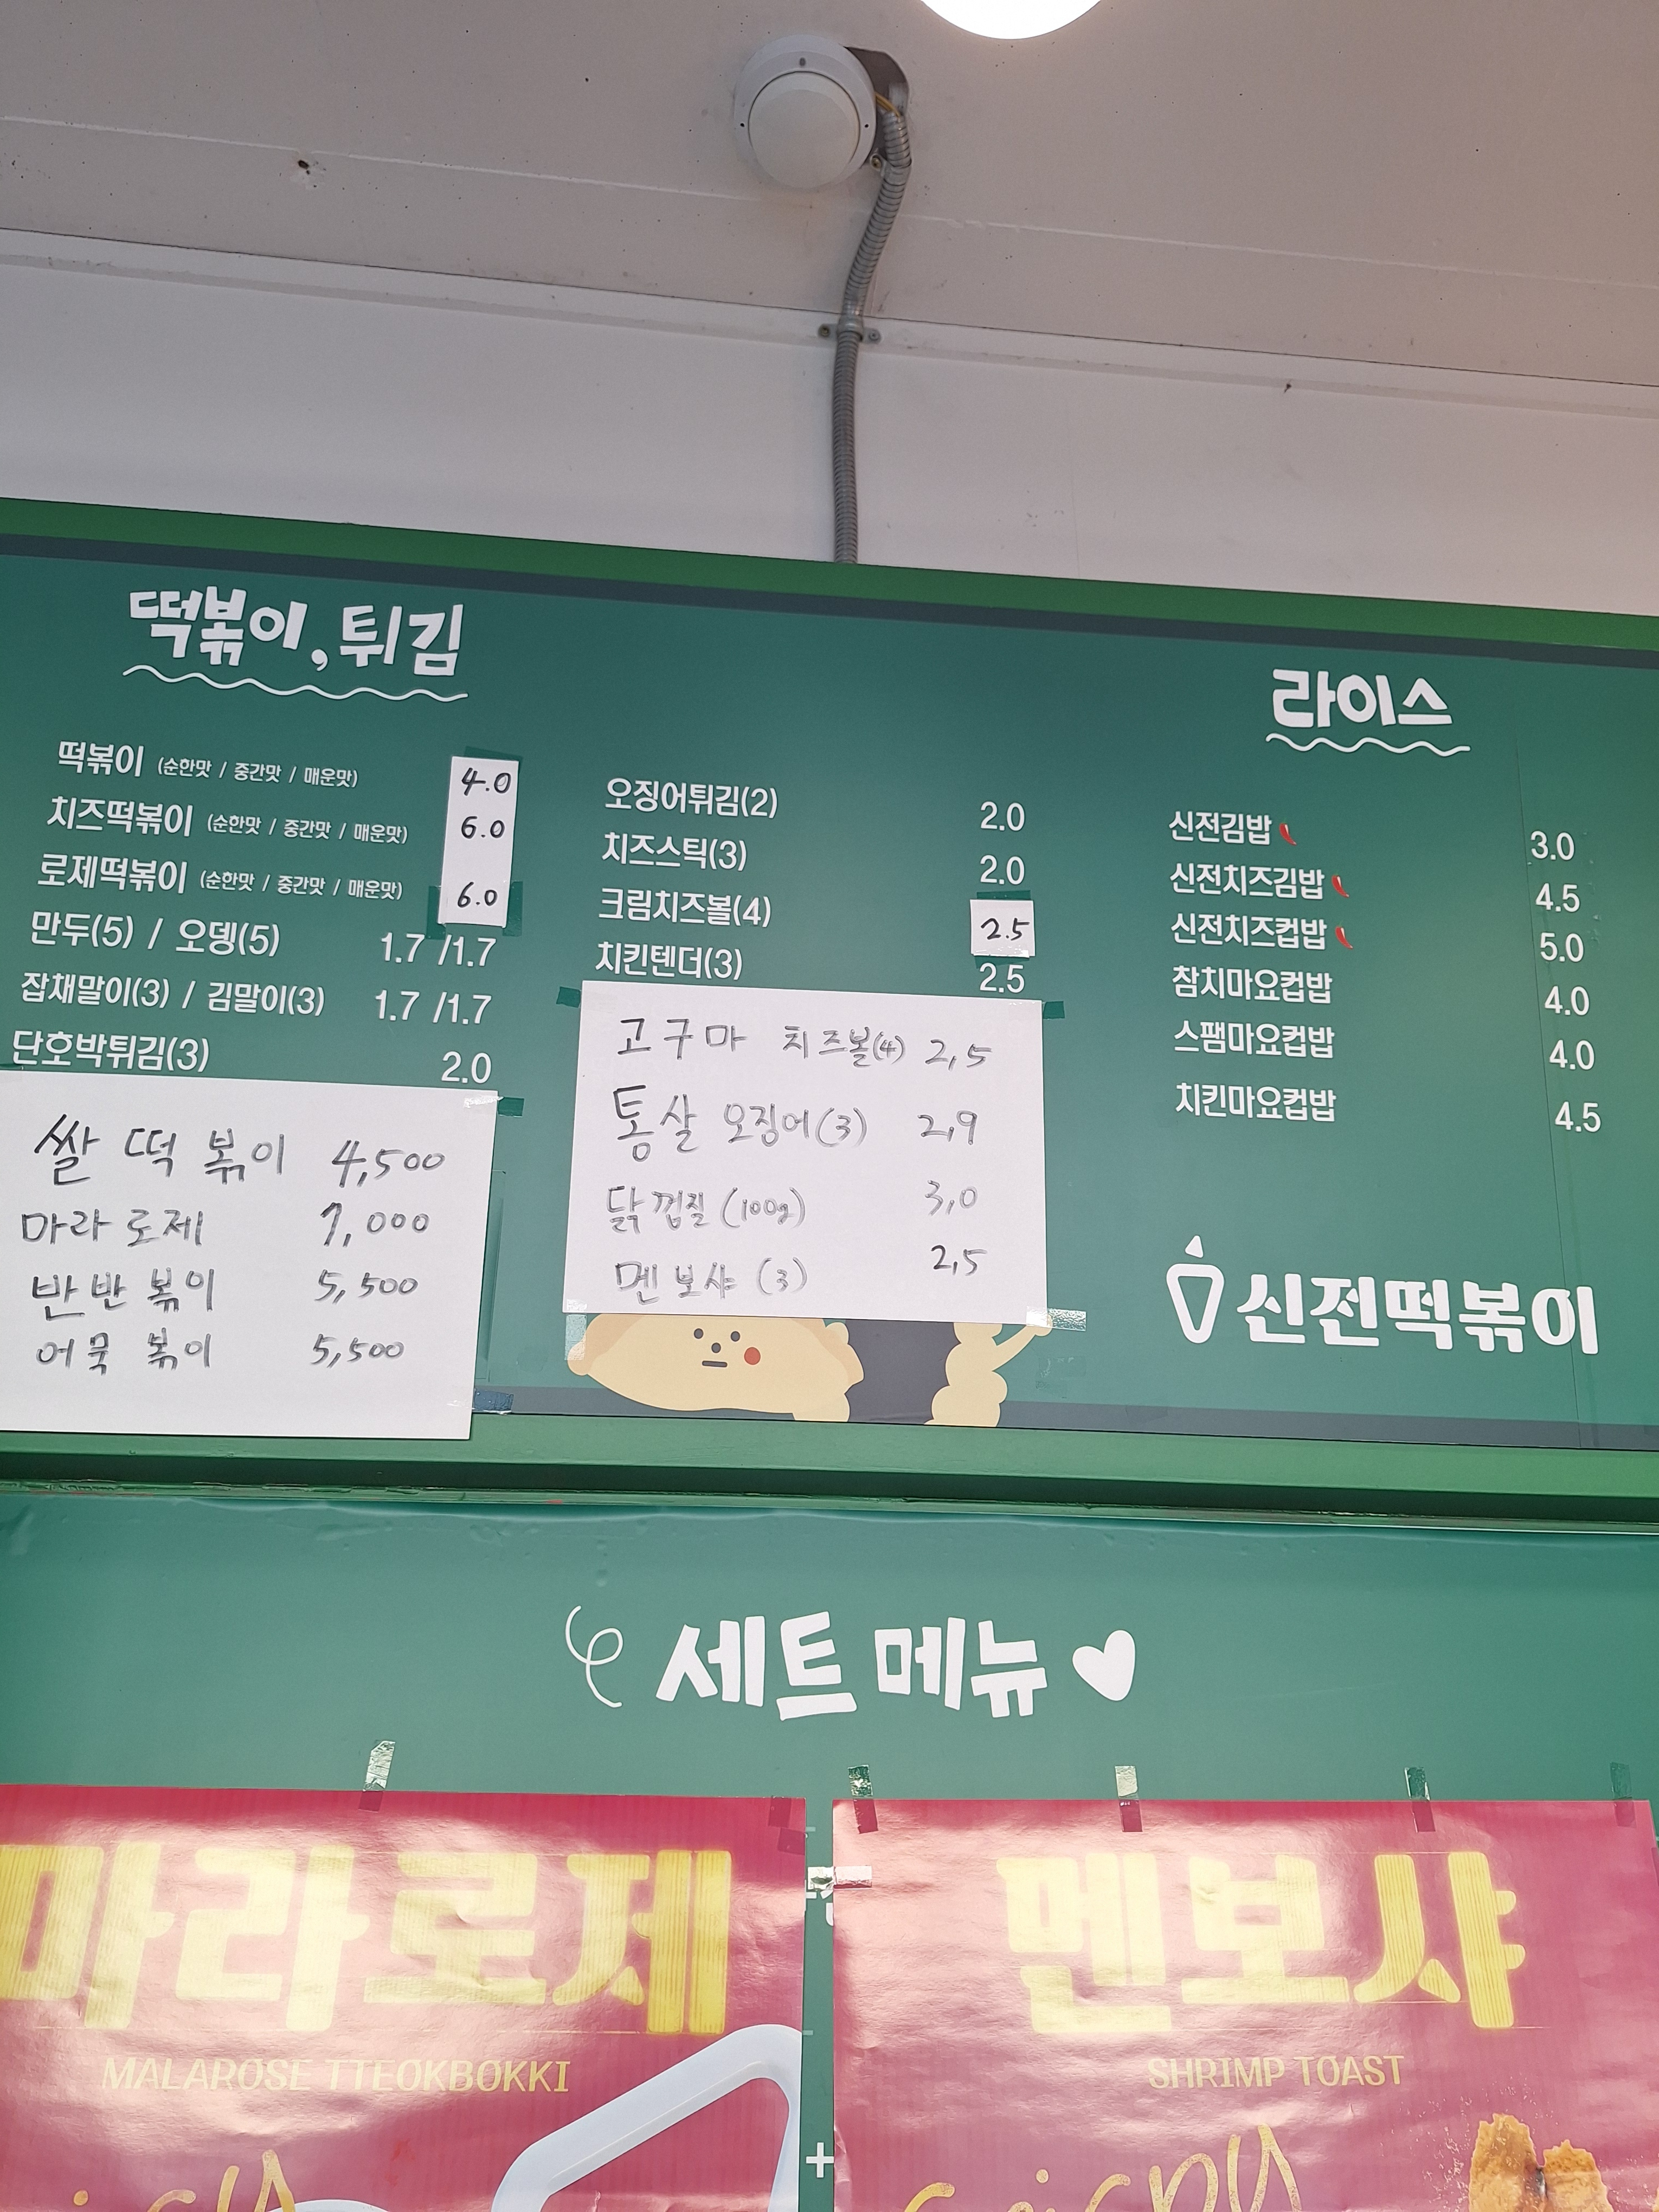 떡볶이, 튀김
떡볶이 (순한맛 / 중간맛 / 매운맛) 4.0
치즈떡볶이 (순한맛 / 중간맛 / 매운맛) 6.0
로제떡볶이 (순한맛 / 중간맛 / 매운맛) 6.0
만두(5) / 오뎅(5) 1.7 /1.7
잡채말이(3) / 김말이(3) 1.7 /1.7
단호박튀김(3) 2.0
쌀 떡 볶이 4,500
마라 로제 7,000
반반 볶이 5,500
어묵 볶이 5,500
오징어튀김(2) 2.0
치즈스틱(3) 2.0
크림치즈볼(4) 2.5
치킨텐더(3) 2.5
고구마 치즈볼(4) 2,5
통살 오징어(3) 2,9
닭껍질 (100g) 3,0
멘보샤 (3) 2,5
라이스
신전김밥 3.0
신전치즈김밥 4.5
신전치즈컵밥 5.0
참치마요컵밥 4.0
스팸마요컵밥 4.0
치킨마요컵밥 4.5
신전떡볶이
세트 메뉴
마라로제
MALAROSE TTEOKBOKKI
멘보샤
SHRIMP TOAST
+